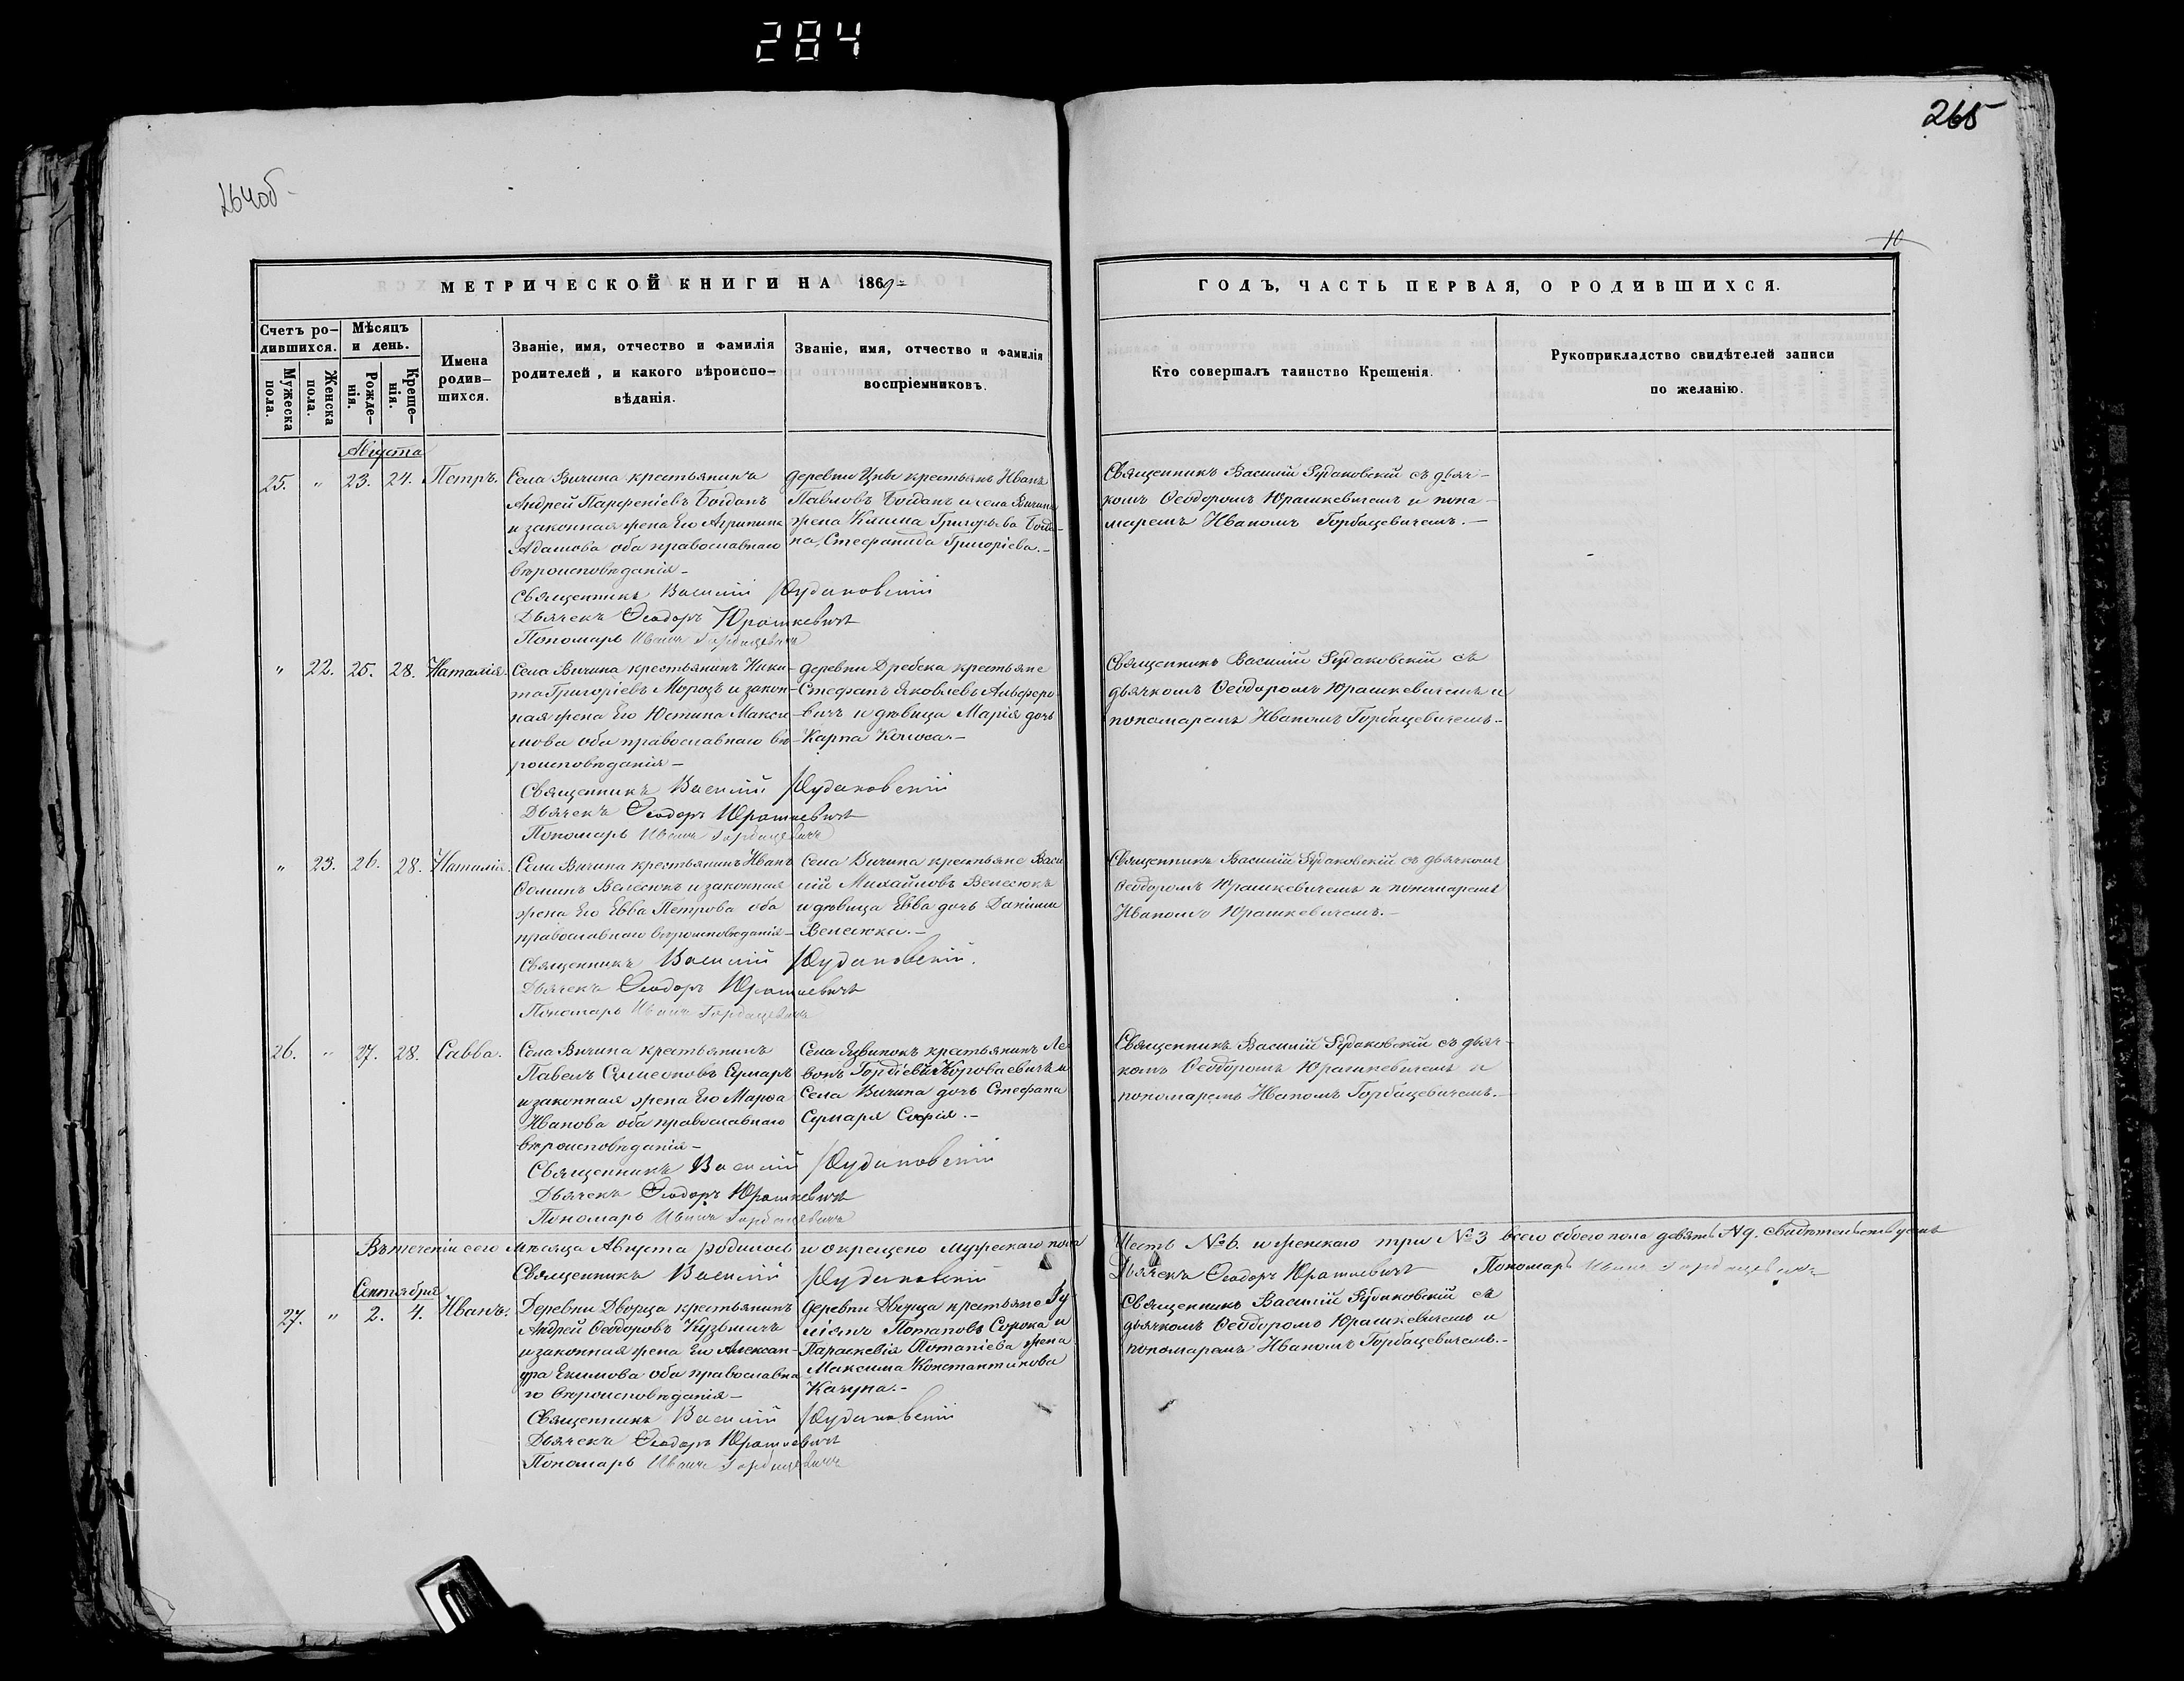 284
265
264об
10
МЕТРИЧЕСКОЙ КНИГИ НА 1869
ГОДЪ, ЧАСТЬ ПЕРВАЯ, О РОДИВШИХСЯ.
Счетъ родившихся.
Мужеска пола.
Женска пола.
Мѣсяцъ и день.
Рожденія.
Крещенія.
Имена родившихся.
Званіе, имя, отчество и фамилія
родителей, и какого вѣроиспо-
вѣданія.
Званіе, имя, отчество и фамилія
воспріемниковъ.
Кто совершалъ таинство Крещенія.
Рукоприкладство свидѣтелей записи
по желанію.
Августа
25. " 23. 24. Петръ.
Села Вичина крестьянинъ
Андрей Парфеніевъ Богданъ
и законная жена Его Агрипина
Адамова оба православнаго
вѣроисповѣданія –
деревни Цны крестьянъ Иванъ
Павловъ Богданъ и села Вичина
жена Клима Григорьева Богда-
на, Стефанида Григоріева. –
Священникъ Василій Рудаковскій съ дьяч-
комъ Ѳеодоромъ Юрашкевичемъ и поно-
маремъ Иваномъ Горбацевичемъ. –
Священникъ Василій Рудаковскій
Дьячекъ Ѳеодоръ Юрашкевичъ
Пономарь Иванъ Горбацевичъ
" 22. 25. 28. Наталія.
Села Вичина крестьянинъ Ники-
та Григоріевъ Морозъ и закон-
ная жена Его Юстина Макси-
мова оба православнаго вѣ-
роисповѣданія –
деревни Дребска крестьяне
Стефанъ Яковлевъ Альферо-
вичъ и дѣвица Марія дочь
Карпа Колоса. –
Священникъ Василій Рудаковскій съ
дьячкомъ Ѳеодоромъ Юрашкевичемъ и
пономаремъ Иваномъ Горбацевичемъ. –
Священникъ Василій Рудаковскій
Дьячекъ Ѳеодоръ Юрашкевичъ
Пономарь Иванъ Горбацевичъ
" 23. 26. 28. Наталія.
Села Вичина крестьянинъ Иванъ
Ѳоминъ Велесюкъ и законная
жена Его Евва Петрова оба
православнаго вѣроисповѣданія –
Села Вичина крестьяне Васи
лій Михайловъ Велесюкъ
и дѣвица Евва дочь Даніила
Велесюка. –
Священникъ Василій Рудаковскій съ дьячкомъ
Ѳеодоромъ Юрашкевичемъ и пономаремъ
Иваномъ Юрашкевичемъ. –
Священникъ Василій Рудаковскій.
Дьячекъ Ѳеодоръ Юрашкевичъ
Пономарь Иванъ Горбацевичъ
26. " 27. 28. Савва.
Села Вичина крестьянинъ
Павелъ Симеоновъ Сумаръ
и законная жена Его Марѳа
Иванова оба православнаго
вѣроисповѣданія –
Села Язвинокъ крестьянинъ Ле
вонъ Гордіевъ Короваевичъ и
Села Вичина дочь Стефана
Сумаря Софія. –
Священникъ Василій Рудаковскій съ дьяч-
комъ Ѳеодоромъ Юрашкевичемъ и
пономаремъ Иваномъ Горбацевичемъ. –
Священникъ Василій Рудаковскій
Дьячекъ Ѳеодоръ Юрашкевичъ
Пономарь Иванъ Горбацевичъ
Въ теченіи сего мѣсяца Августа родилось и окрещено мужескаго пола шесть №6. и женскаго три №3 всего обоего пола девять №9. свидѣтельствуемъ
Священникъ Василій Рудаковскій
Дьячекъ Ѳеодоръ Юрашкевичъ Пономарь Иванъ Горбацевичъ
Сентября
27. " 2. 4. Иванъ.
Деревни Дворца крестьянинъ
Андрей Ѳеодоровъ Кузьмичъ
и законная жена Его Алексан-
дра Екимова оба православна
го вѣроисповѣданія –
деревни Дворца крестьяне Іу
ліанъ Потаповъ Сорока и
Параскевія Потапіева жена
Максима Константинова
Качука. –
Священникъ Василій Рудаковскій съ
дьячкомъ Ѳеодоромъ Юрашкевичемъ и
пономаремъ Иваномъ Горбацевичемъ. –
Священникъ Василій Рудаковскій
Дьячекъ Ѳеодоръ Юрашкевичъ
Пономарь Иванъ Горбацевичъ